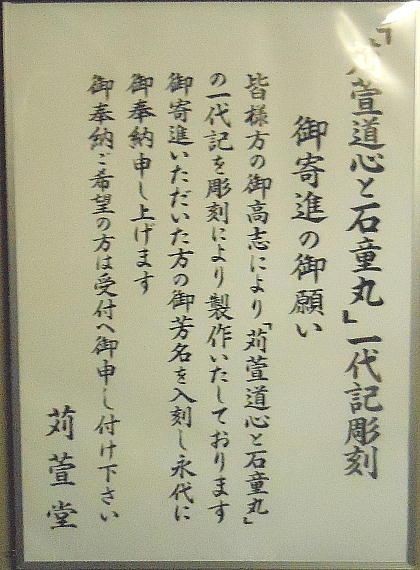 「苅萱道心と石童丸」一代記彫刻
御寄進の御願い
皆様方の御高志により「苅萱道心と石童丸」
の一代記を彫刻により製作いたしております
御寄進いただいた方の御芳名を入刻し永代に
御奉納申し上げます
御奉納ご希望の方は受付へ御申し付け下さい
苅萱堂